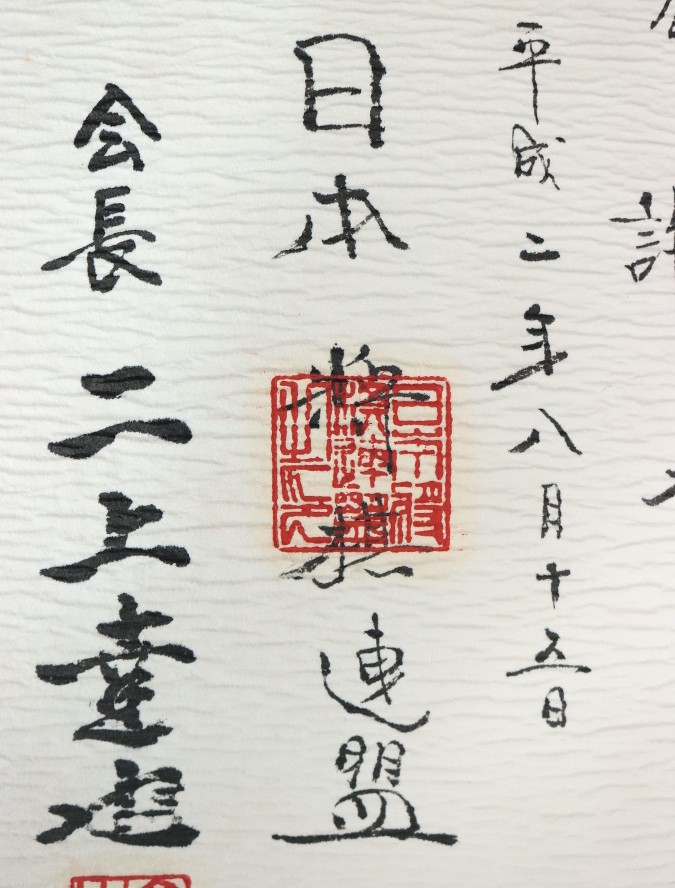 平成二年八月十五日
日本将棋連盟
日本将棋連盟之印
会長 二上達也